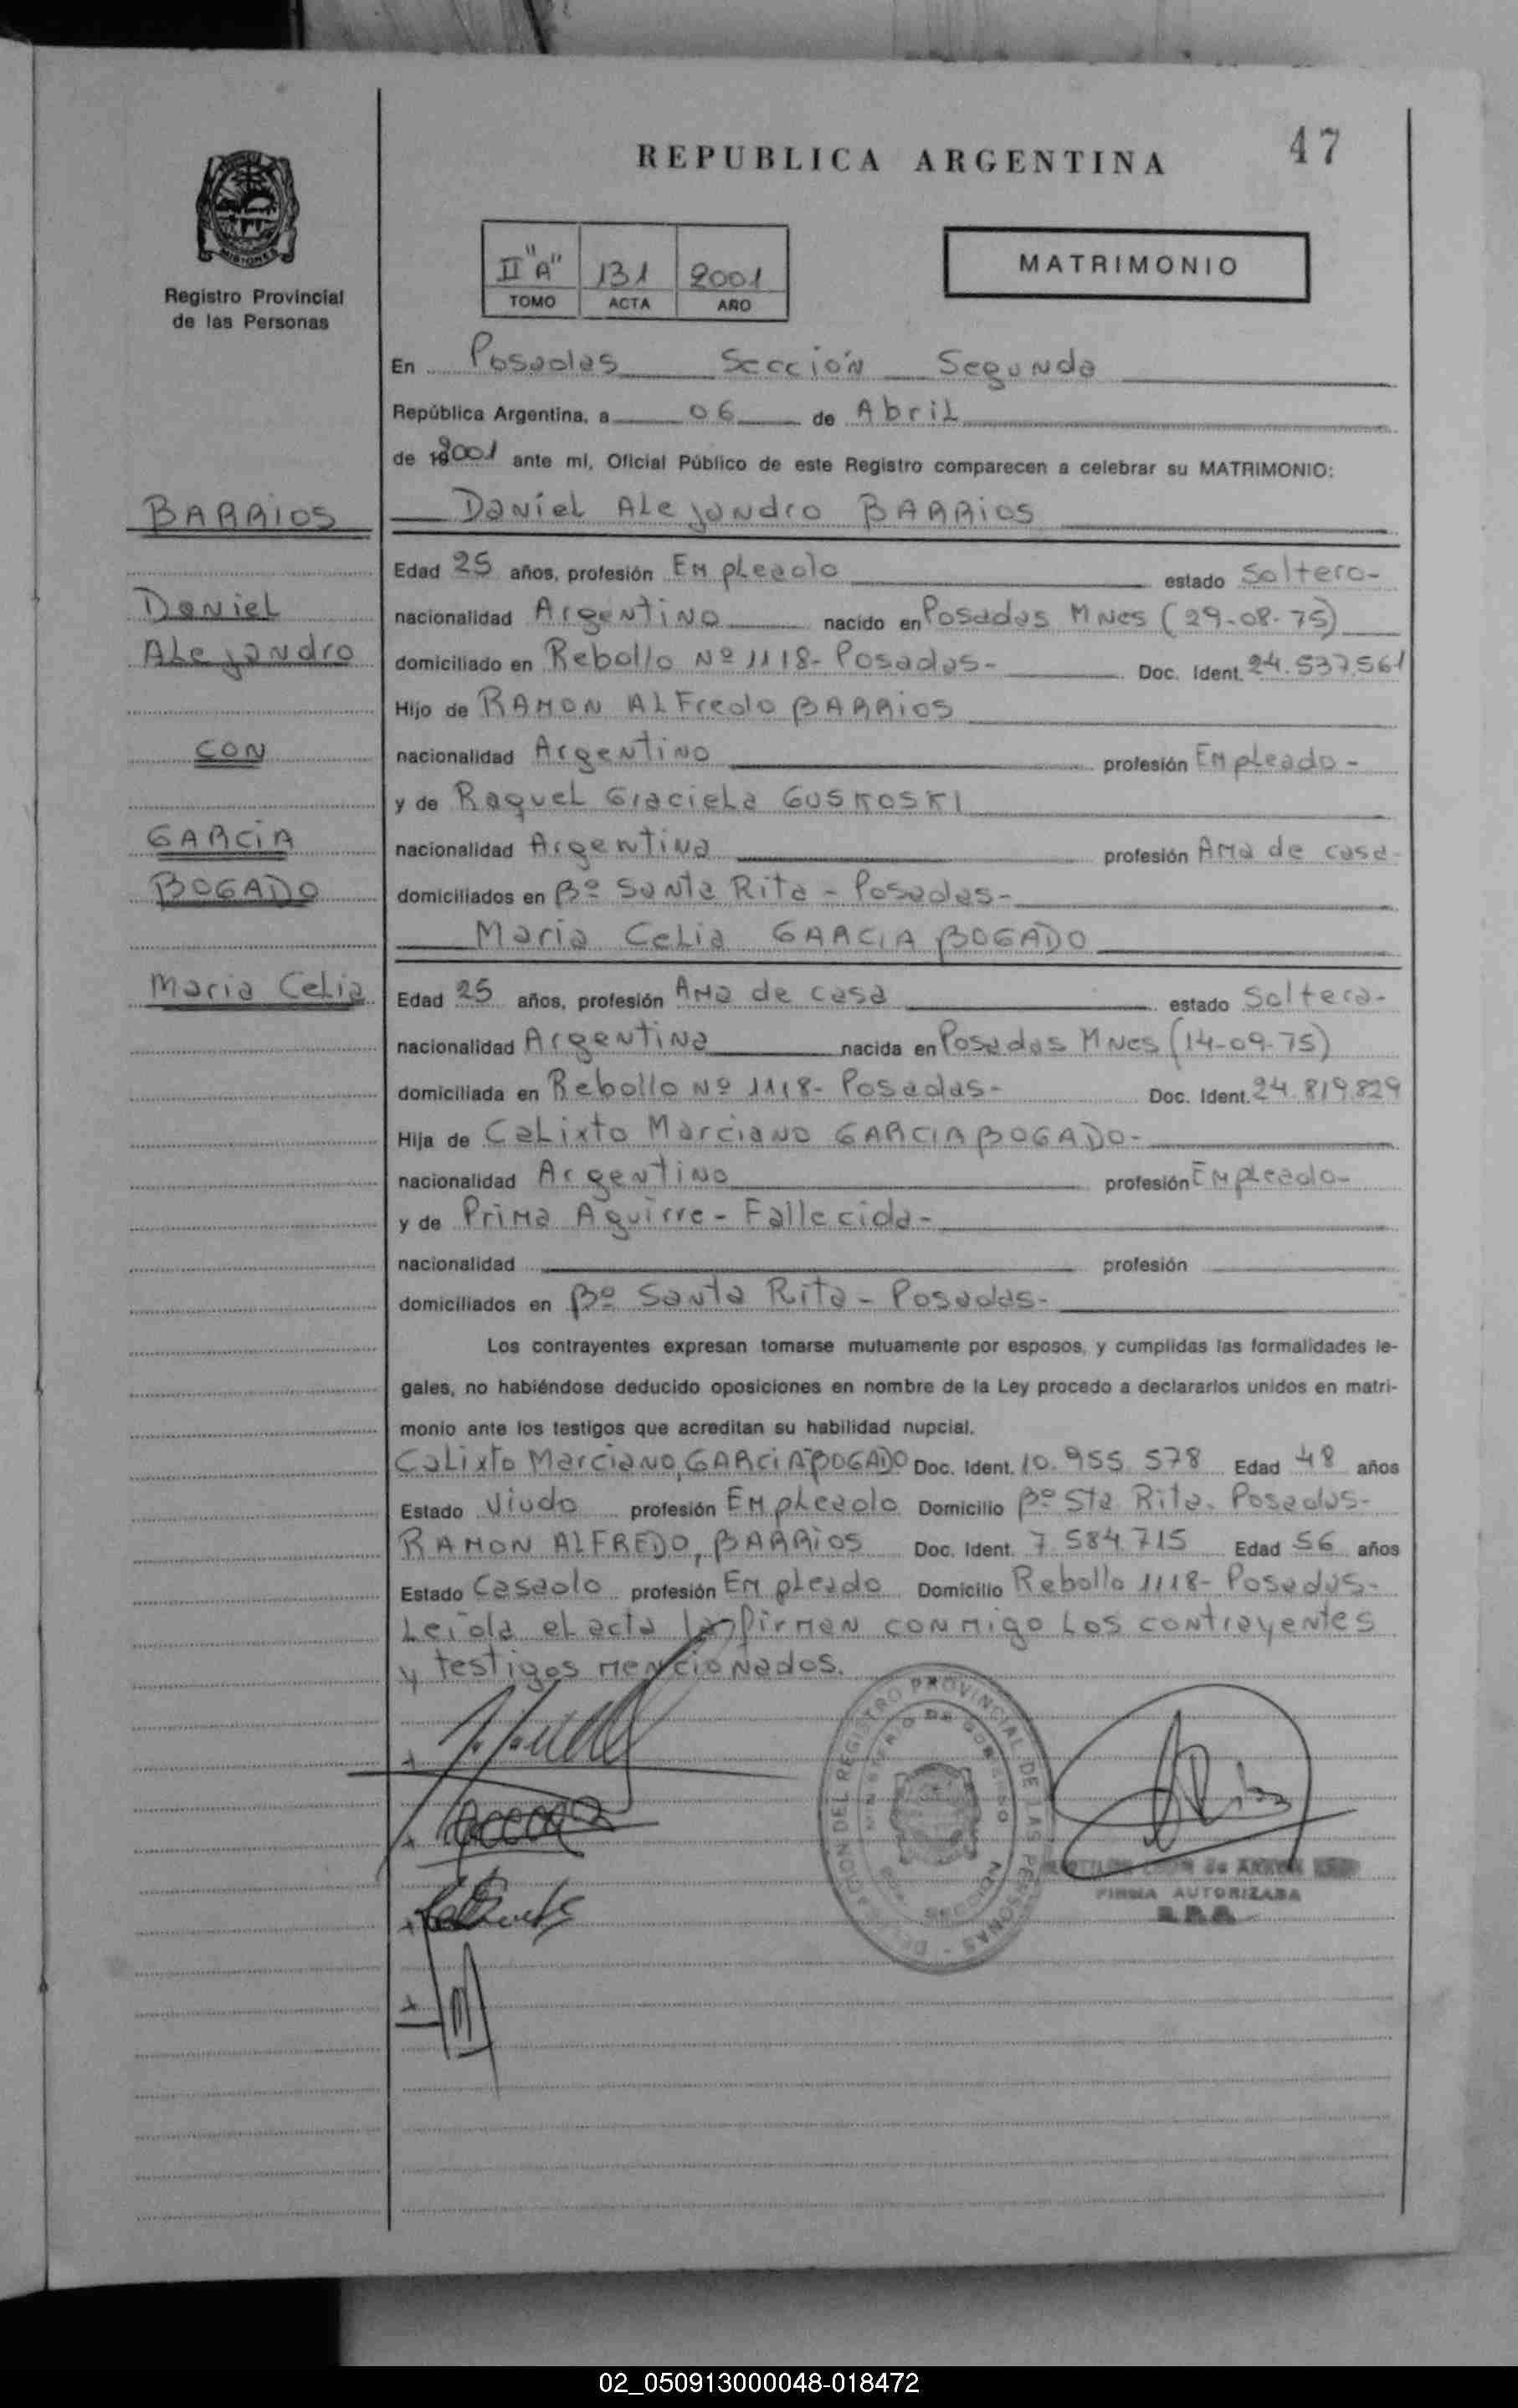 REPUBLICA ARGENTINA
47
MISIONES
Registro Provincial
de las Personas
II "A" 131 2001
TOMO ACTA AÑO
MATRIMONIO
En Posadas Sección Segunda
República Argentina, a 06 de Abril
de 2001 ante mí, Oficial Público de este Registro comparecen a celebrar su MATRIMONIO:
BARRIOS
Daniel
Alejandro
CON
GARCIA
BOGADO
Maria Celia
Daniel Alejandro BARRIOS
Edad 25 años, profesión Empleado estado Soltero-
nacionalidad Argentino nacido en Posadas Mnes (29-08-75)
domiciliado en Rebollo Nº 1118- Posadas- Doc. Ident. 24.537.561
Hijo de RAMON ALFredo BARRIOS
nacionalidad Argentino profesión Empleado-
y de Raquel Graciela GUSKOSKI
nacionalidad Argentina profesión Ama de casa-
domiciliados en Bº Santa Rita - Posadas-
Maria Celia GARCIA BOGADO
Edad 25 años, profesión Ama de casa estado Soltera-
nacionalidad Argentina nacida en Posadas Mnes (14-09-75)
domiciliada en Rebollo Nº 1118- Posadas- Doc. Ident. 24.819.829
Hija de Calixto Marciano GARCIA BOGADO-
nacionalidad Argentino profesión Empleado-
y de Prima Aguirre - Fallecida-
nacionalidad profesión
domiciliados en Bº Santa Rita - Posadas-
Los contrayentes expresan tomarse mutuamente por esposos, y cumplidas las formalidades le-
gales, no habiéndose deducido oposiciones en nombre de la Ley procedo a declararlos unidos en matri-
monio ante los testigos que acreditan su habilidad nupcial.
Calixto Marciano, GARCIA BOGADO Doc. Ident. 10.955.578 Edad 48 años
Estado Viudo profesión Empleado Domicilio Bº Sta Rita. Posadas-
RAMON ALFREDO, BARRIOS Doc. Ident. 7.584.715 Edad 56 años
Estado Casado profesión Empleado Domicilio Rebollo 1118- Posadas-
Leida el acta la firman conmigo los contrayentes
y testigos mencionados.
REGISTRO PROVINCIAL DE LAS PERSONAS
MINISTERIO DE GOBIERNO
FIRMA AUTORIZADA
02_050913000048-018472